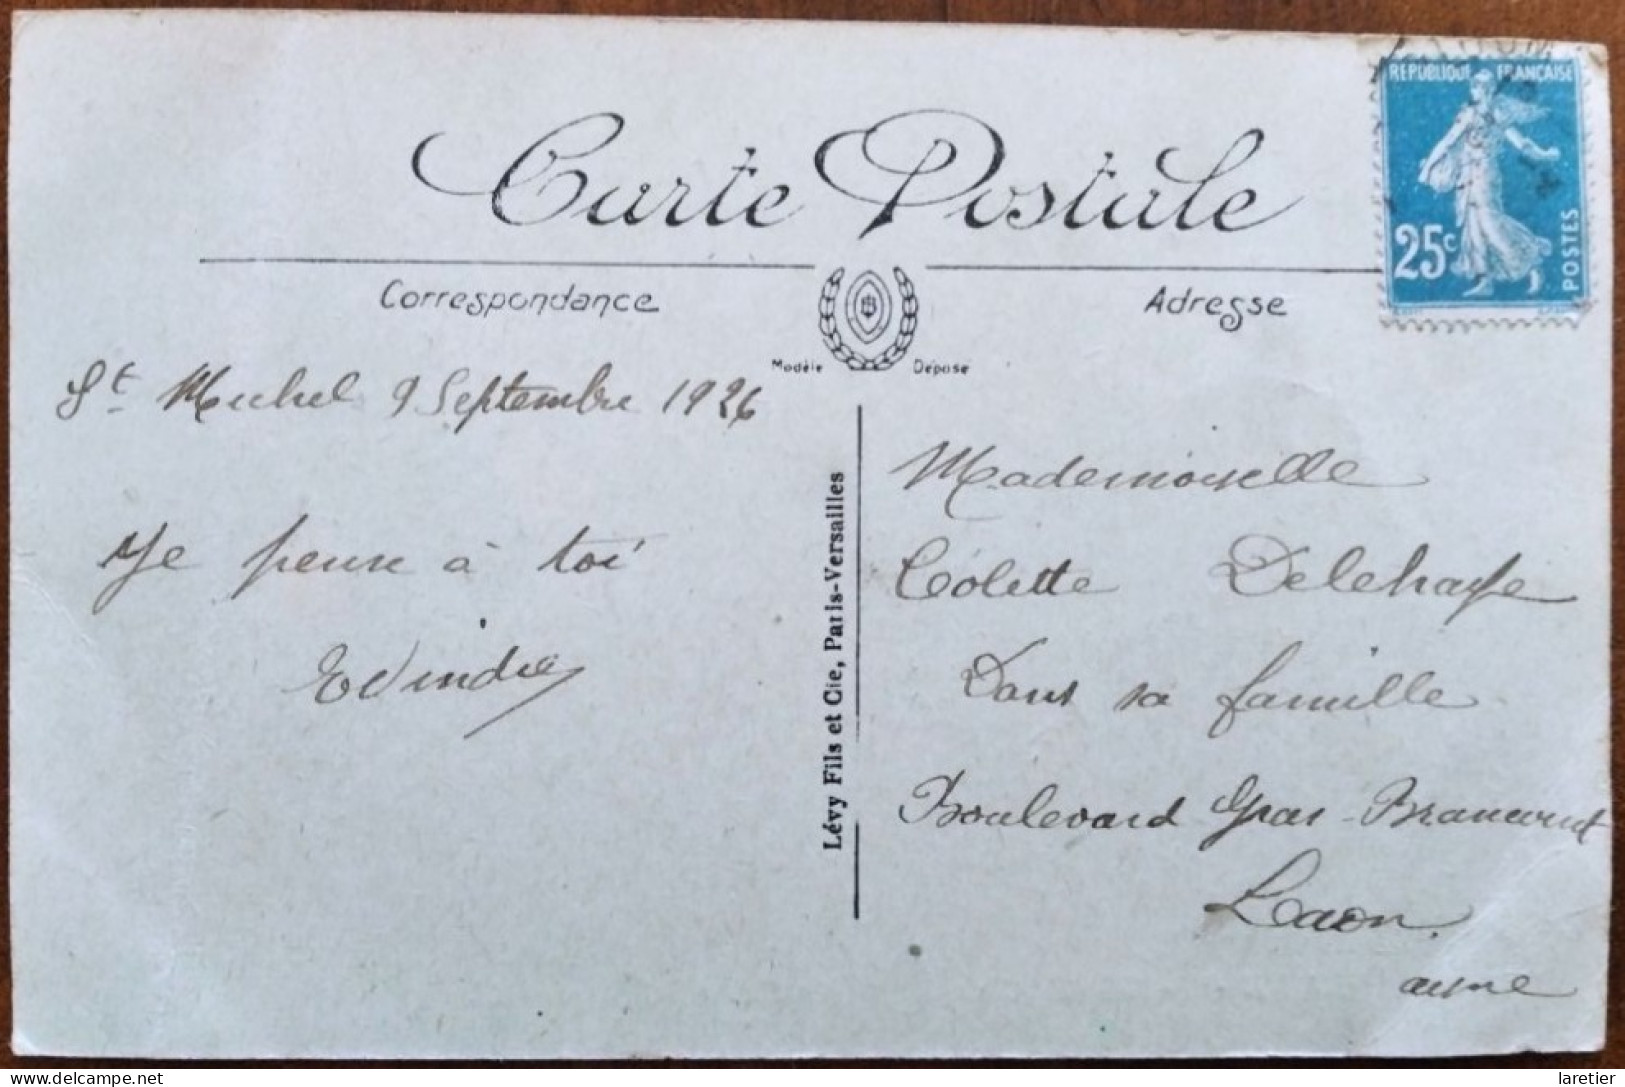 Carte Postale
RÉPUBLIQUE FRANÇAISE
25c
POSTES
Correspondance
Adresse
Modèle Déposé
St Michel 9 Septembre 1926
Je pense à toi
Lévy Fils et Cie, Paris-Versailles
Mademoiselle
Colette Delehaye
Dans sa famille
Boulevard Gras-Brancourt
Laon.
aisne
delcampe.net
laretier